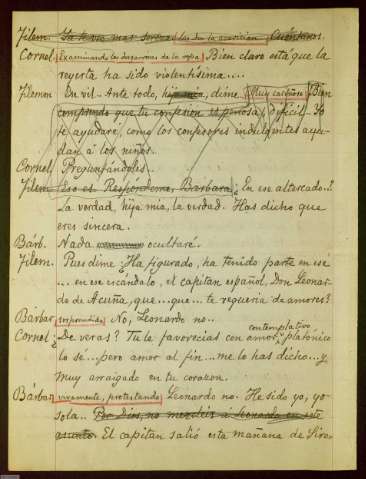 Filem. Ya te veo mas serena. (les da la emoción) Cuéntanos.
Cornel. (Examinando los desgarrones de la ropa) Bien claro está que la
reyerta ha sido violentísima....
Filemon En vil- Ante todo, hija mia, dime. (Muy cariñoso) Bien
comprendo que tu confesion es penosa, difícil- Yo
te ayudaré, como los confesores indulgentes ayu-
dan á los niños.
Cornel. Preguntándoles.
Filem. Eso es. Respóndeme, Bárbara: En ese altercado..?
La verdad, hija mia, la verdad. Has dicho que
eres sincera.
Bárb. Nada ocultaré.
Filem. Pues dime ¿Ha figurado, ha tenido parte en ese
... en ese escándalo, el capitan español, Don Leonar-
do de Acuña, que... que... te requería de amores?
Bárbar. (sorprendida) No, Leonardo no..
Cornel. ¿De veras? Tu le favorecias con amor contemplativo platónico
lo sé... pero amor al fin... me lo has dicho... y
muy arraigado en tu corazon.
Bárbar. (vivamente, protestando) Leonardo no. He sido yo, yo
sola.. Por Dios, no mezcleis a Leonardo en este
asunto. El capitan salió esta mañana de Sira-